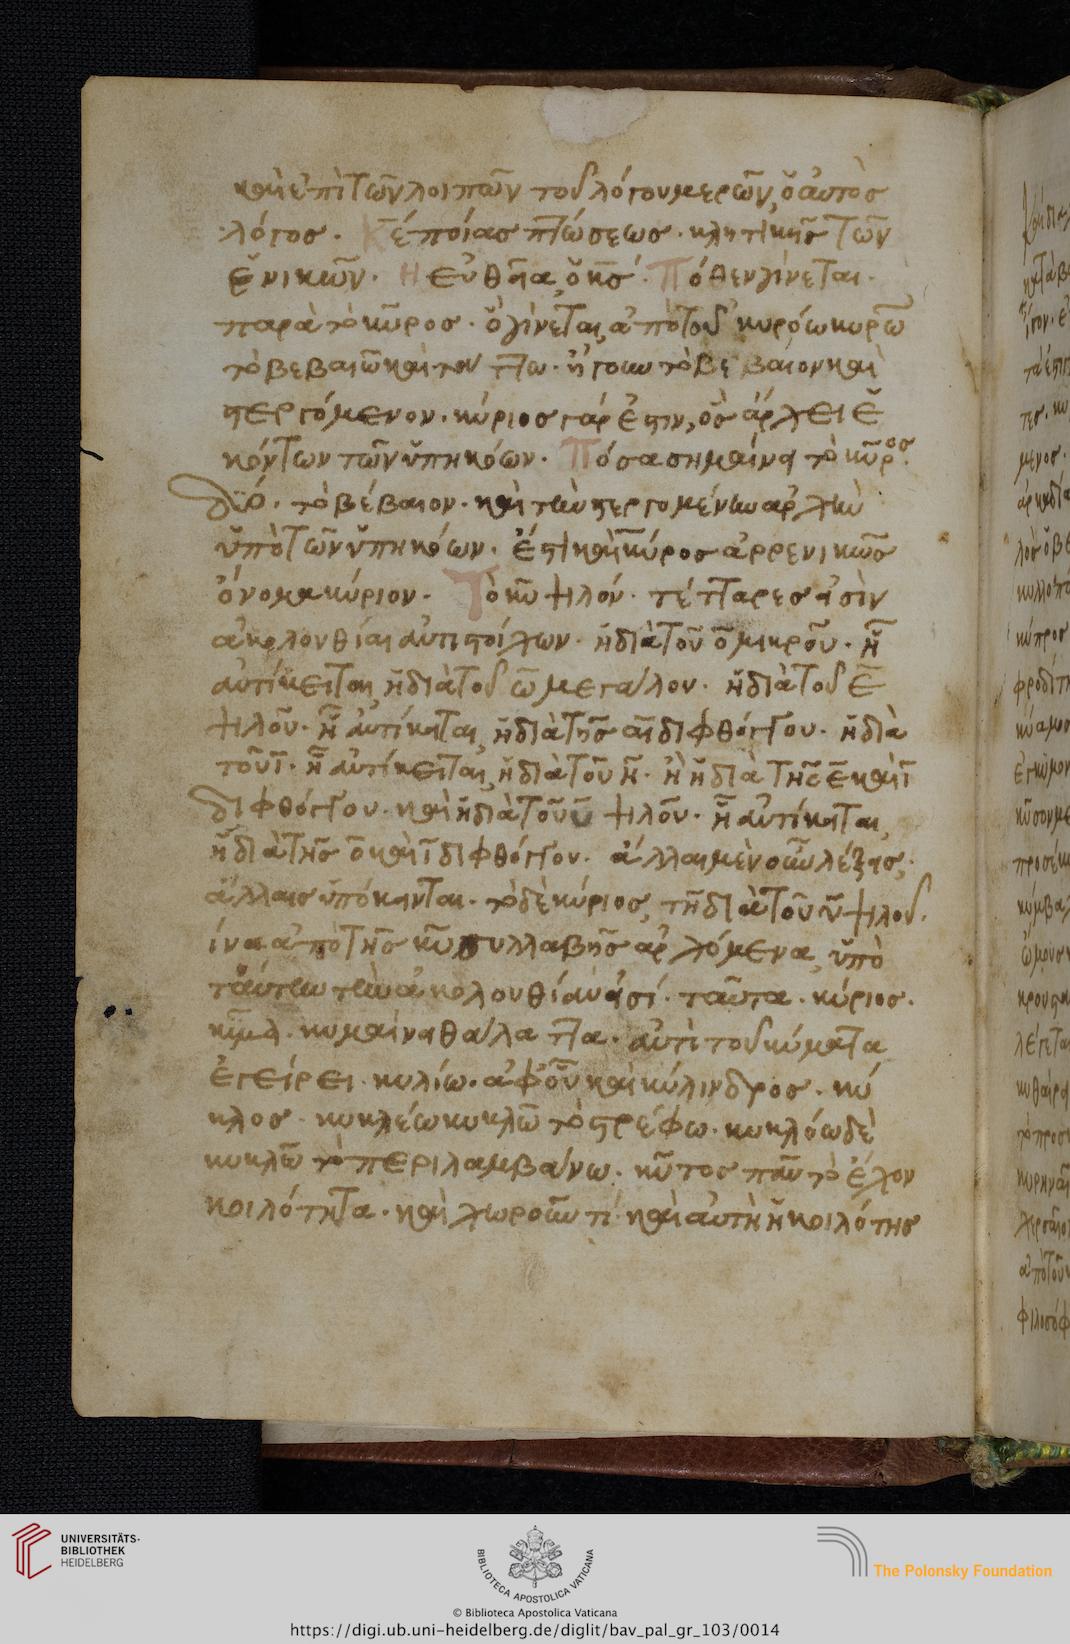 καὶ ἐπὶ τῶν λοιπῶν τοῦ λόγου μερῶν, ὁ αὐτὸς
λόγος. Κέ ποίας πτώσεως. κλητικῆς τῶν
ἑνικῶν. Η εὐθεῖα, ὁ κς. Πόθεν γίνεται.
παρὰ τὸ κῦρος. ὃ γίνεται, ἀπὸ τοῦ κυρόω κυρῶ
τὸ βεβαιῶ καὶ τὸ πω. ἤγουν τὸ βέβαιον καὶ
στεργόμενον. κύριος γάρ ἐστιν, ὃς ἄρχει ἑ
κόντων τῶν ὑπηκόων. Πόσα σημαίνει τὸ κῦρος.
δύο. τὸ βέβαιον. καὶ τὴν στεργομένην ἀρχὴν
ὑπὸ τῶν ὑπηκόων. ἔστι καὶ κύρος ἀρρενικῶς
ὄνομα κύριον. Τὸ κυ ψιλόν. τέτταρες εἰσὶν
ἀκολουθίαι ἀντιστοίχων. ἡ διὰ τοῦ ο μικροῦ. ᾗ
ἀντίκειται, ἡ διὰ τοῦ ω μεγάλου. ἡ διὰ τοῦ ε
ψιλοῦ. ᾗ ἀντίκειται, ἡ διὰ τῆς αι διφθόγγου. ἡ διὰ
τοῦ ι. ᾗ ἀντίκειται, ἡ διὰ τοῦ η. ἢ ἡ διὰ τῆς ε καὶ ι
διφθόγγου. καὶ ἡ διὰ τοῦ υ ψιλοῦ. ᾗ ἀντίκειται,
ἡ διὰ τῆς ο καὶ ι διφθόγγου. ἄλλαι μὲν οὖν λέξεις,
ἄλλαις ὑπόκεινται. τὸ δὲ κύριος, τῇ διὰ τοῦ υ ψιλοῦ.
ἵνα ἀπὸ τῆς κυ συλλαβῆς ἀρχόμενα, ὑπὸ
ταύτην τὴν ἀκολουθίαν εἰσί. ταῦτα. κύριος.
κῦμα. κυμαίνει θάλαττα. ἀντὶ τοῦ κύματα
ἐγείρει. κυλίω. ἀφ' οὗ καὶ κύλινδρος. κύ
κλος. κυκλέω κυκλῶ τὸ στρέφω. κυκλόω δὲ
κυκλῶ τὸ περιλαμβάνω. κῦτος πᾶν τὸ ἔχον
κοιλότητα. καὶ χωροῦν τι. καὶ αὐτὴ ἡ κοιλότης
UNIVERSITÄTS-
BIBLIOTHEK
HEIDELBERG
BIBLIOTECA APOSTOLICA VATICANA
The Polonsky Foundation
© Biblioteca Apostolica Vaticana
https://digi.ub.uni-heidelberg.de/diglit/bav_pal_gr_103/0014